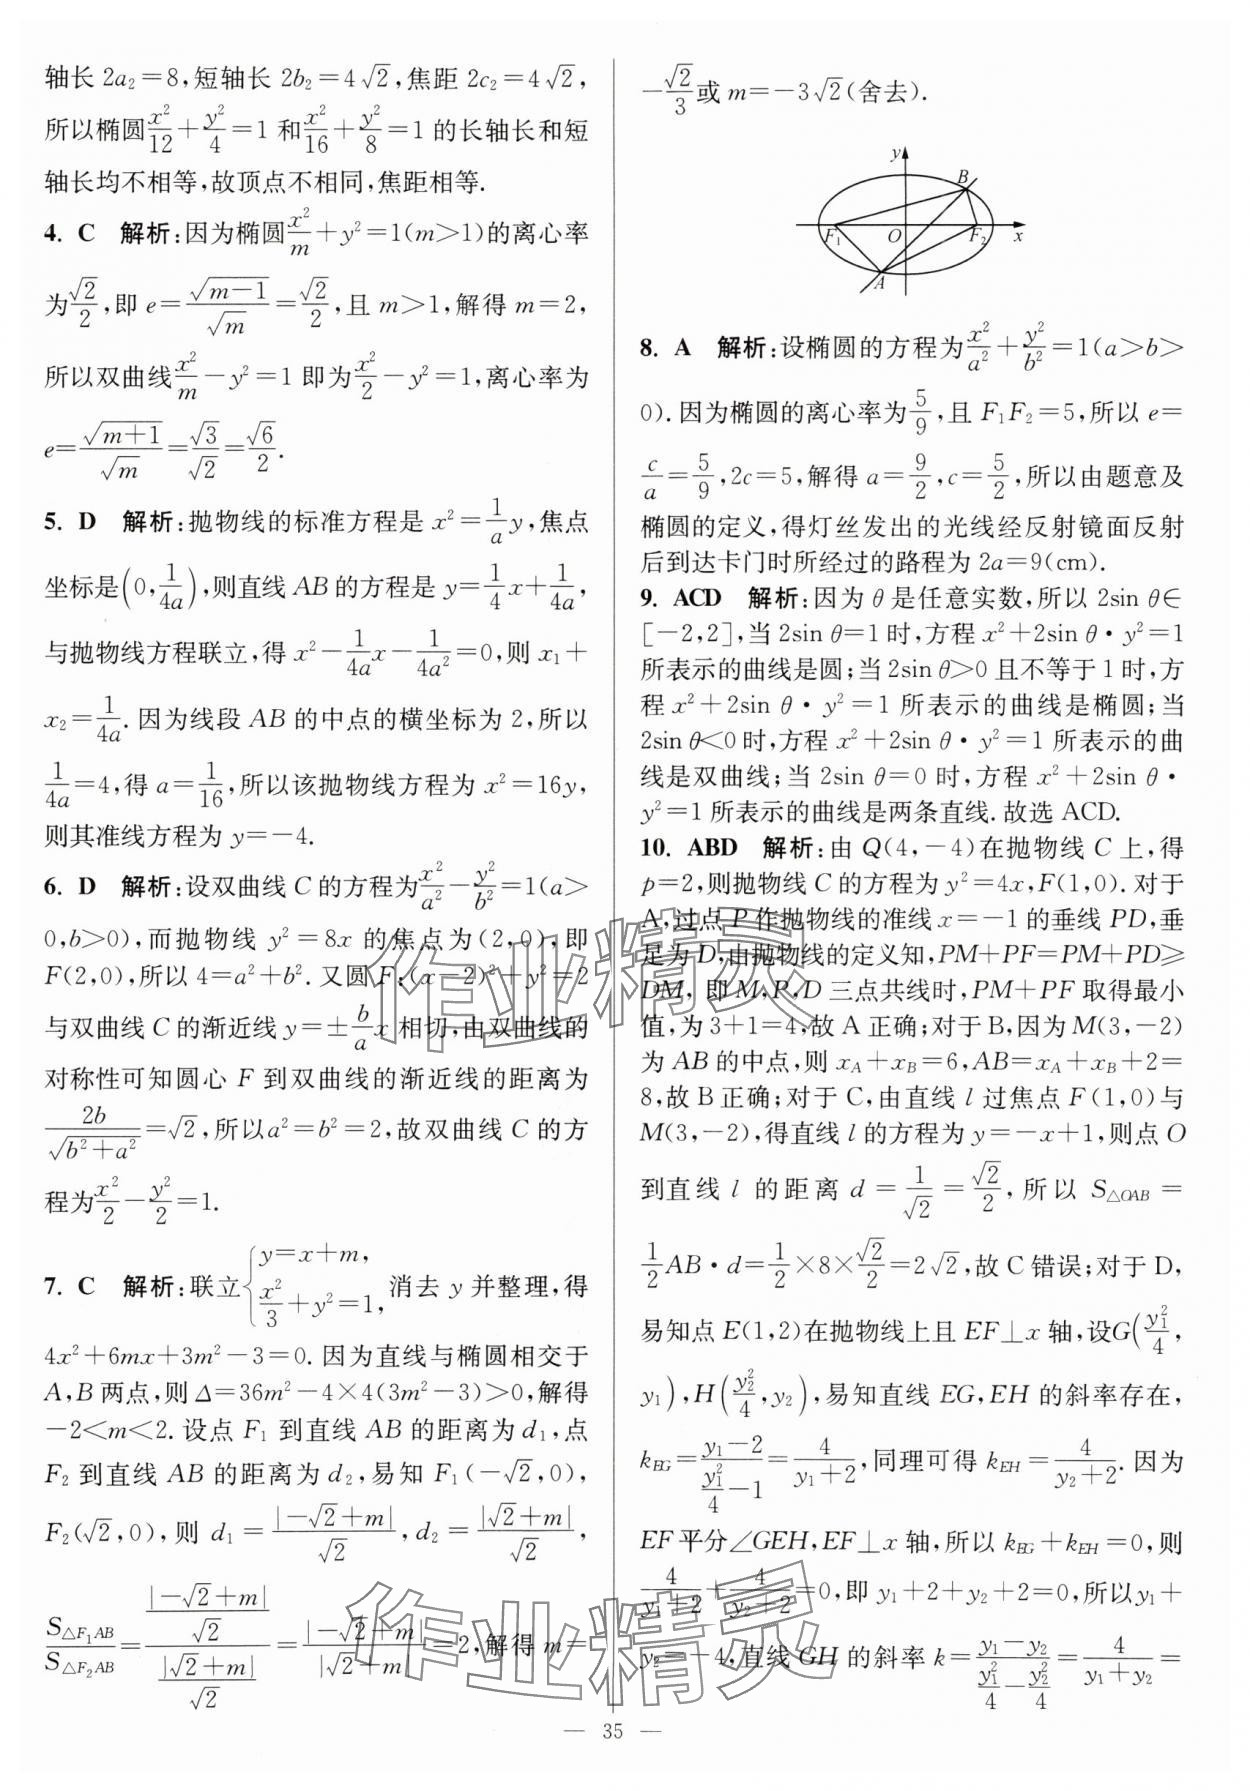 轴长 2a₂=8,短轴长 2b₂=4√2,焦距 2c₂=4√2,
所以椭圆x²/12+y²/4=1 和x²/16+y²/8=1 的长轴长和短
轴长均不相等,故顶点不相同,焦距相等.
4. C 解析:因为椭圆x²/m+y²=1(m>1)的离心率
为√2/2,即 e=√(m-1)/√m=√2/2,且 m>1,解得 m=2,
所以双曲线x²/m-y²=1 即为x²/2-y²=1,离心率为
e=√(m+1)/√m=√3/√2=√6/2.
5. D 解析:抛物线的标准方程是 x²=1/a y,焦点
坐标是(0,1/4a),则直线 AB 的方程是 y=1/4 x+1/4a,
与抛物线方程联立,得 x²-1/4a x-1/4a²=0,则 x₁+
x₂=1/4a.因为线段 AB 的中点的横坐标为 2,所以
1/4a=4,得 a=1/16,所以该抛物线方程为 x²=16y,
则其准线方程为 y=-4.
6. D 解析:设双曲线 C 的方程为x²/a²-y²/b²=1(a>
0,b>0),而抛物线 y²=8x 的焦点为(2,0),即
F(2,0),所以 4=a²+b².又圆 F:(x-2)²+y²=2
与双曲线 C 的渐近线 y=±b/a x 相切,由双曲线的
对称性可知圆心 F 到双曲线的渐近线的距离为
2b/√(b²+a²)=√2,所以a²=b²=2,故双曲线 C 的方
程为x²/2-y²/2=1.
7. C 解析:联立{y=x+m, x²/3+y²=1, 消去 y 并整理,得
4x²+6mx+3m²-3=0.因为直线与椭圆相交于
A,B 两点,则 Δ=36m²-4×4(3m²-3)>0,解得
-2<m<2.设点 F₁ 到直线 AB 的距离为 d₁,点
F₂ 到直线 AB 的距离为 d₂,易知 F₁(-√2,0),
F₂(√2,0),则 d₁=|-√2+m|/√2,d₂=|√2+m|/√2,
S△F₁AB/S△F₂AB=(|-√2+m|/√2)/(|√2+m|/√2)=|-√2+m|/|√2+m|=2,解得 m=
-√2/3或 m=-3√2(舍去).
y
B
F₁ O F₂ x
A
8. A 解析:设椭圆的方程为x²/a²+y²/b²=1(a>b>
0).因为椭圆的离心率为5/9,且 F₁F₂=5,所以 e=
c/a=5/9,2c=5,解得 a=9/2,c=5/2,所以由题意及
椭圆的定义,得灯丝发出的光线经反射镜面反射
后到达卡门时所经过的路程为 2a=9(cm).
9. ACD 解析:因为 θ 是任意实数,所以 2sin θ∈
[-2,2],当 2sin θ=1 时,方程 x²+2sin θ·y²=1
所表示的曲线是圆;当 2sin θ>0 且不等于 1 时,方
程 x²+2sin θ·y²=1 所表示的曲线是椭圆;当
2sin θ<0 时,方程 x²+2sin θ·y²=1 所表示的曲
线是双曲线;当 2sin θ=0 时,方程 x²+2sin θ·
y²=1 所表示的曲线是两条直线.故选 ACD.
10. ABD 解析:由 Q(4,-4)在抛物线 C 上,得
p=2,则抛物线 C 的方程为 y²=4x,F(1,0).对于
A,过点 P 作抛物线的准线 x=-1 的垂线 PD,垂
足为 D,由抛物线的定义知,PM+PF=PM+PD≥
DM,即 M,P,D 三点共线时,PM+PF 取得最小
值,为 3+1=4,故 A 正确;对于 B,因为 M(3,-2)
为 AB 的中点,则 x_A+x_B=6,AB=x_A+x_B+2=
8,故 B 正确;对于 C,由直线 l 过焦点 F(1,0)与
M(3,-2),得直线 l 的方程为 y=-x+1,则点 O
到直线 l 的距离 d=1/√2=√2/2,所以 S△OAB=
1/2 AB·d=1/2×8×√2/2=2√2,故 C 错误;对于 D,
易知点 E(1,2)在抛物线上且 EF⊥x 轴,设G(y₁²/4,
y₁),H(y₂²/4,y₂),易知直线 EG,EH 的斜率存在,
k_EG=(y₁-2)/(y₁²/4-1)=4/(y₁+2),同理可得 k_EH=4/(y₂+2).因为
EF 平分∠GEH,EF⊥x 轴,所以 k_EG+k_EH=0,则
4/(y₁+2)+4/(y₂+2)=0,即 y₁+2+y₂+2=0,所以y₁+
y₂=-4,直线GH 的斜率 k=(y₁-y₂)/(y₁²/4-y₂²/4)=4/(y₁+y₂)=
— 35 —
作业精灵
作业精灵